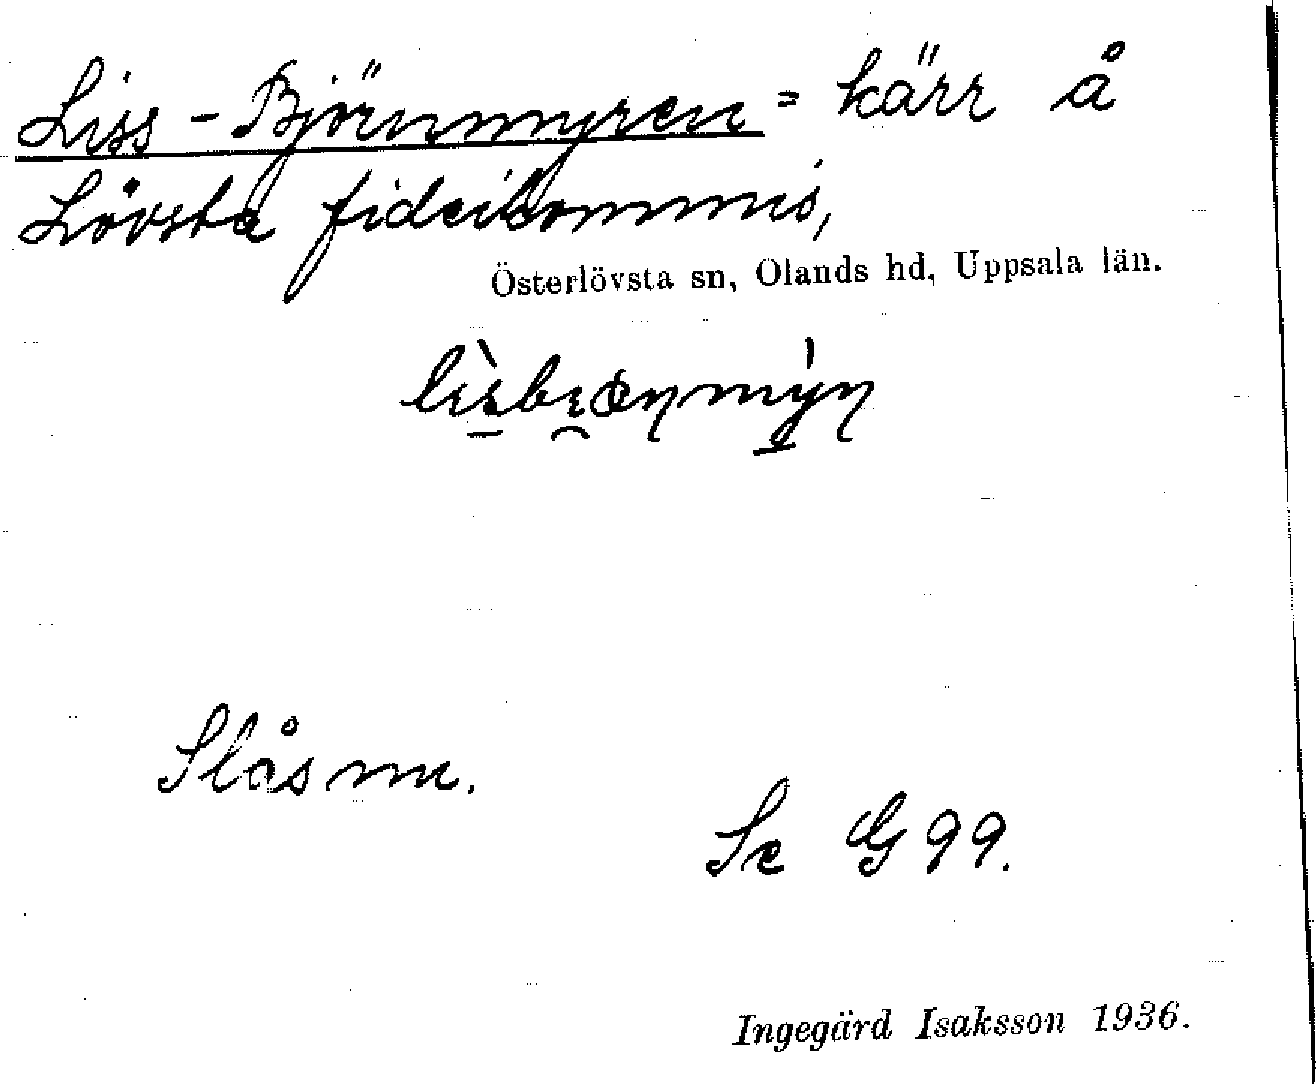 Liss-Björnmyren = kärr å
Lövsta fideikommis,
Österlövsta sn, Olands hd, Uppsala län.
Slåsmu.
Se G 99.
Ingegärd Isaksson 1936.